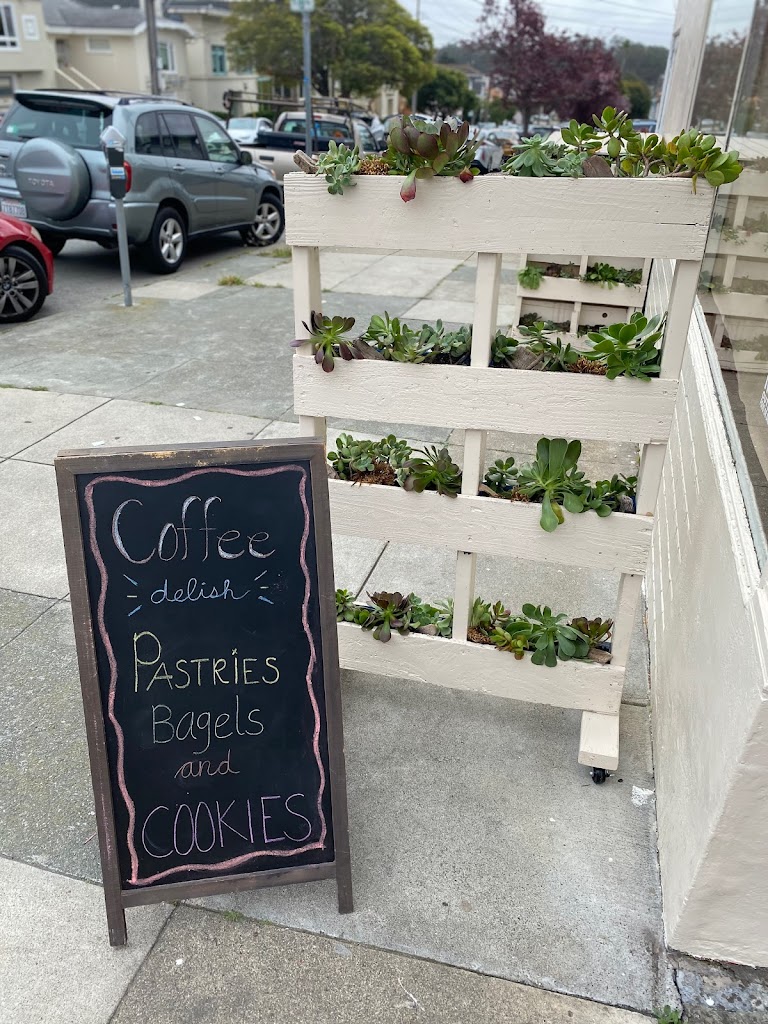 TOYOTA
Coffee
delish
PASTRIES
Bagels
and
COOKIES